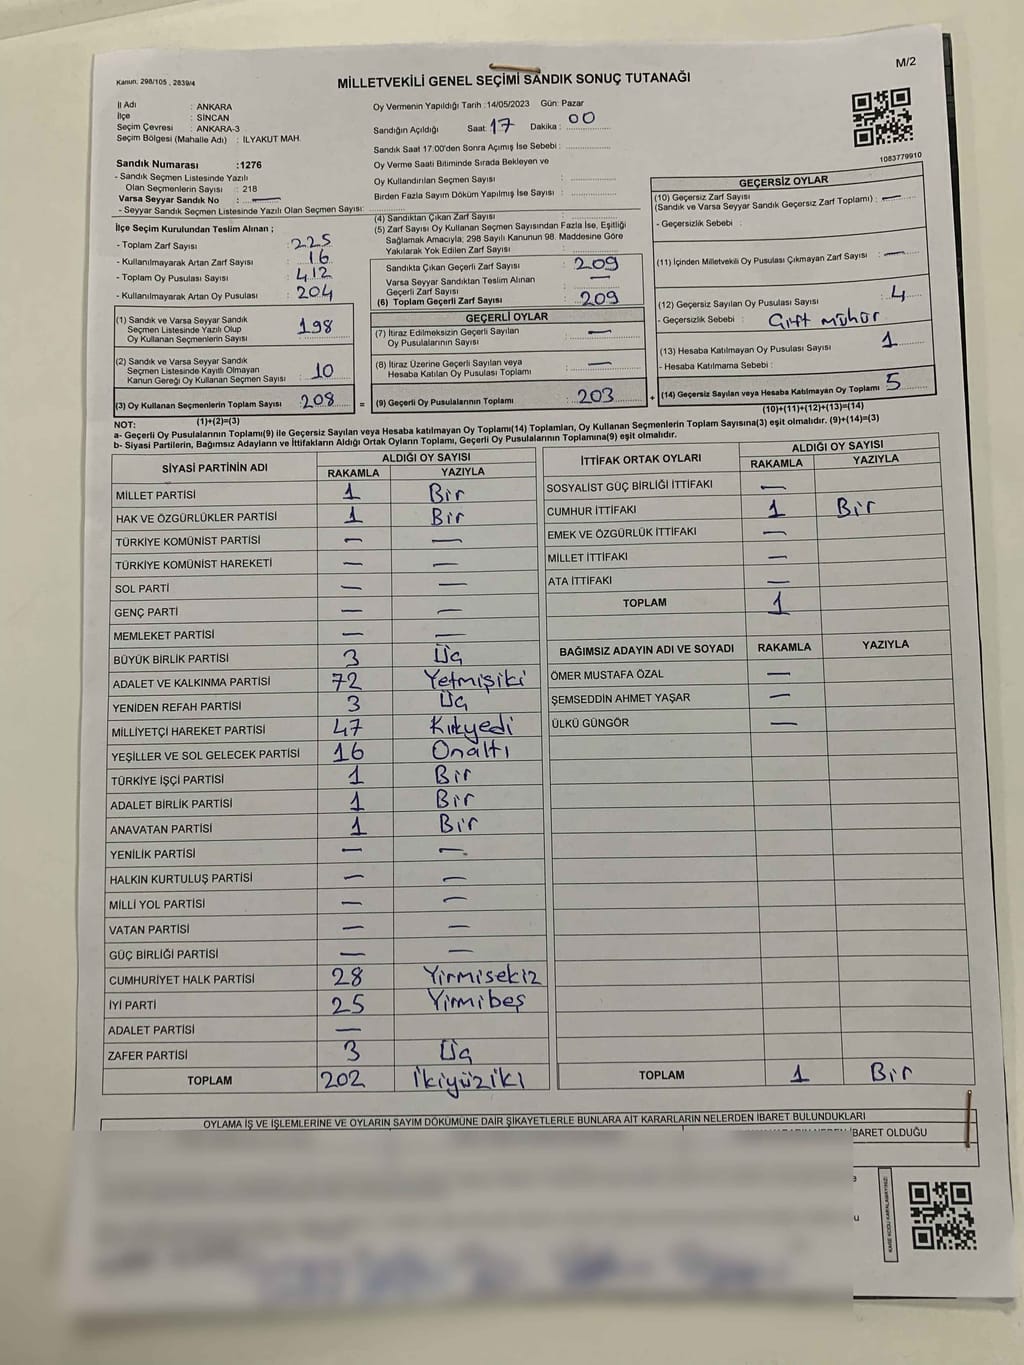 Kanun: 298/105 , 2839/4
MİLLETVEKİLİ GENEL SEÇİMİ SANDIK SONUÇ TUTANAĞI
M/2
İl Adı : ANKARA
İlçe : SİNCAN
Seçim Çevresi : ANKARA-3
Seçim Bölgesi (Mahalle Adı) : İLYAKUT MAH.
Sandık Numarası :1276
- Sandık Seçmen Listesinde Yazılı
Olan Seçmenlerin Sayısı : 218
Varsa Seyyar Sandık No : —
- Seyyar Sandık Seçmen Listesinde Yazılı Olan Seçmen Sayısı:
Oy Vermenin Yapıldığı Tarih :14/05/2023 Gün: Pazar
Sandığın Açıldığı Saat: 17 Dakika : 00
Sandık Saat 17:00'den Sonra Açımış İse Sebebi :
Oy Verme Saati Bitiminde Sırada Bekleyen ve
Oy Kullandırılan Seçmen Sayısı :
Birden Fazla Sayım Döküm Yapılmış İse Sayısı :
1083779910
İlçe Seçim Kurulundan Teslim Alınan ;
- Toplam Zarf Sayısı : 225
- Kullanılmayarak Artan Zarf Sayısı : 16
- Toplam Oy Pusulası Sayısı : 412
- Kullanılmayarak Artan Oy Pusulası : 204
(1) Sandık ve Varsa Seyyar Sandık
Seçmen Listesinde Yazılı Olup
Oy Kullanan Seçmenlerin Sayısı : 198
(2) Sandık ve Varsa Seyyar Sandık
Seçmen Listesinde Kayıtlı Olmayan
Kanun Gereği Oy Kullanan Seçmen Sayısı : 10
(3) Oy Kullanan Seçmenlerin Toplam Sayısı : 208
(1)+(2)=(3)
(4) Sandıktan Çıkan Zarf Sayısı :
(5) Zarf Sayısı Oy Kullanan Seçmen Sayısından Fazla İse, Eşitliği
Sağlamak Amacıyla, 298 Sayılı Kanunun 98. Maddesine Göre
Yakılarak Yok Edilen Zarf Sayısı :
Sandıkta Çıkan Geçerli Zarf Sayısı : 209
Varsa Seyyar Sandıktan Teslim Alınan
Geçerli Zarf Sayısı : —
(6) Toplam Geçerli Zarf Sayısı : 209
GEÇERLİ OYLAR
(7) İtiraz Edilmeksizin Geçerli Sayılan
Oy Pusulalarının Sayısı : —
(8) İtiraz Üzerine Geçerli Sayılan veya
Hesaba Katılan Oy Pusulası Toplamı : —
= (9) Geçerli Oy Pusulalarının Toplamı : 203
GEÇERSİZ OYLAR
(10) Geçersiz Zarf Sayısı
(Sandık ve Varsa Seyyar Sandık Geçersiz Zarf Toplamı) : —
- Geçersizlik Sebebi :
(11) İçinden Milletvekili Oy Pusulası Çıkmayan Zarf Sayısı : —
(12) Geçersiz Sayılan Oy Pusulası Sayısı : 4
- Geçersizlik Sebebi : Çift mühür
(13) Hesaba Katılmayan Oy Pusulası Sayısı : 1
- Hesaba Katılmama Sebebi :
+ (14) Geçersiz Sayılan veya Hesaba Katılmayan Oy Toplamı : 5
(10)+(11)+(12)+(13)=(14)
NOT:
a- Geçerli Oy Pusulalarının Toplamı(9) ile Geçersiz Sayılan veya Hesaba katılmayan Oy Toplamı(14) Toplamları, Oy Kullanan Seçmenlerin Toplam Sayısına(3) eşit olmalıdır. (9)+(14)=(3)
b- Siyasi Partilerin, Bağımsız Adayların ve İttifakların Aldığı Ortak Oyların Toplamı, Geçerli Oy Pusulalarının Toplamına(9) eşit olmalıdır.
SİYASİ PARTİNİN ADI ALDIĞI OY SAYISI
RAKAMLA YAZIYLA
MİLLET PARTİSİ 1 Bir
HAK VE ÖZGÜRLÜKLER PARTİSİ 1 Bir
TÜRKİYE KOMÜNİST PARTİSİ — —
TÜRKİYE KOMÜNİST HAREKETİ — —
SOL PARTİ — —
GENÇ PARTİ — —
MEMLEKET PARTİSİ — —
BÜYÜK BİRLİK PARTİSİ 3 Üç
ADALET VE KALKINMA PARTİSİ 72 Yetmişiki
YENİDEN REFAH PARTİSİ 3 Üç
MİLLİYETÇİ HAREKET PARTİSİ 47 Kırkyedi
YEŞİLLER VE SOL GELECEK PARTİSİ 16 Onaltı
TÜRKİYE İŞÇİ PARTİSİ 1 Bir
ADALET BİRLİK PARTİSİ 1 Bir
ANAVATAN PARTİSİ 1 Bir
YENİLİK PARTİSİ — —
HALKIN KURTULUŞ PARTİSİ — —
MİLLİ YOL PARTİSİ — —
VATAN PARTİSİ — —
GÜÇ BİRLİĞİ PARTİSİ — —
CUMHURİYET HALK PARTİSİ 28 Yirmisekiz
İYİ PARTİ 25 Yirmibeş
ADALET PARTİSİ —
ZAFER PARTİSİ 3 Üç
TOPLAM 202 İkiyüziki
İTTİFAK ORTAK OYLARI ALDIĞI OY SAYISI
RAKAMLA YAZIYLA
SOSYALİST GÜÇ BİRLİĞİ İTTİFAKI —
CUMHUR İTTİFAKI 1 Bir
EMEK VE ÖZGÜRLÜK İTTİFAKI —
MİLLET İTTİFAKI —
ATA İTTİFAKI —
TOPLAM 1
BAĞIMSIZ ADAYIN ADI VE SOYADI RAKAMLA YAZIYLA
ÖMER MUSTAFA ÖZAL —
ŞEMSEDDİN AHMET YAŞAR —
ÜLKÜ GÜNGÖR —
TOPLAM 1 Bir
OYLAMA İŞ VE İŞLEMLERİNE VE OYLARIN SAYIM DÖKÜMÜNE DAİR ŞİKAYETLERLE BUNLARA AİT KARARLARIN NELERDEN İBARET BULUNDUKLARI
İBARET OLDUĞU